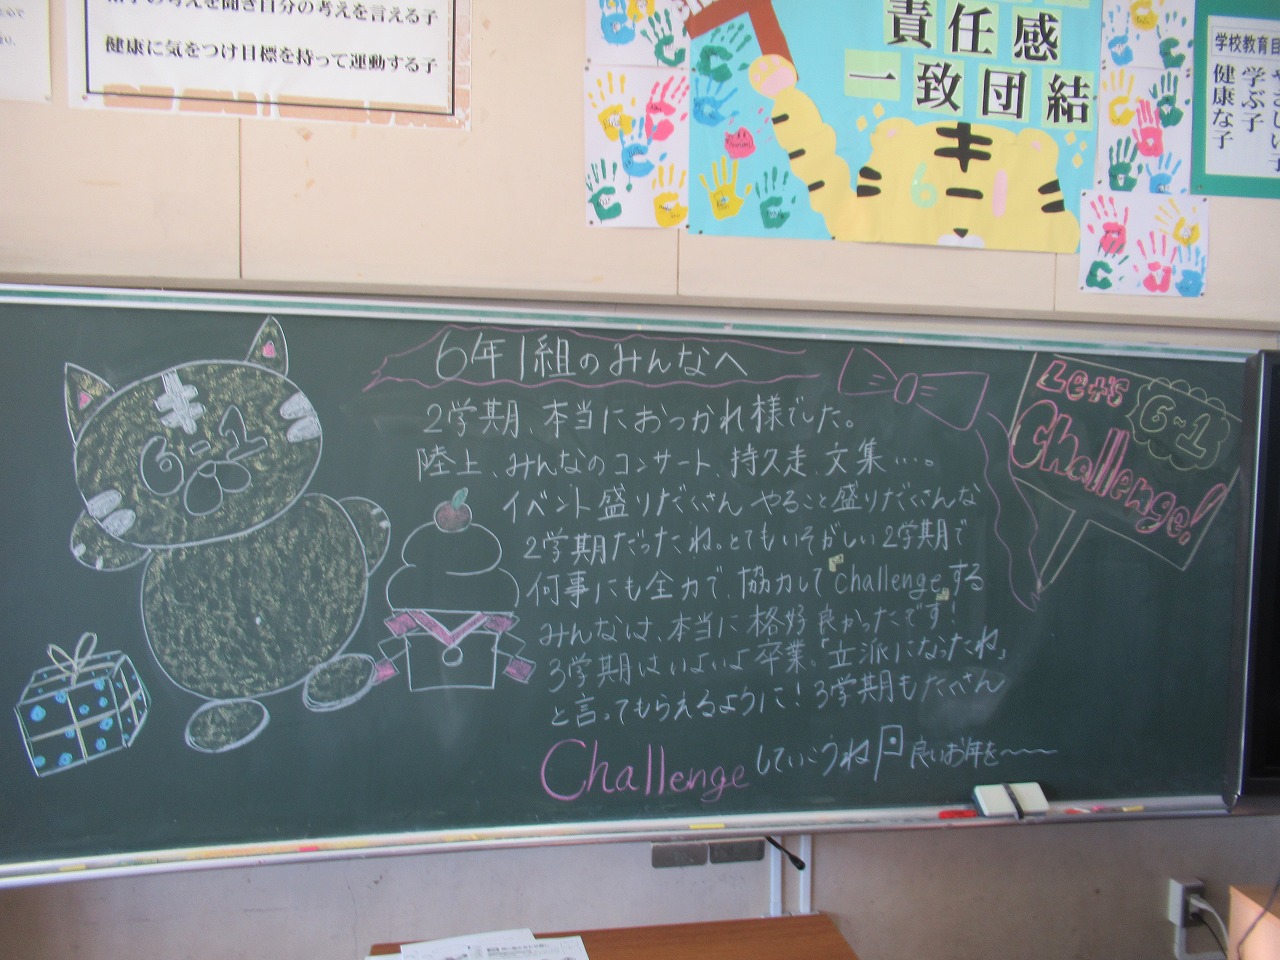 の考えを聞き自分の考えを言える子
健康に気をつけ目標を持って運動する子
責任感
一致団結
キ
6
1
学校教育目
学ぶ子
健康な子
6年1組のみんなへ
2学期、本当におつかれ様でした。
陸上、みんなのコンサート、持久走、文集….。
イベント盛りだくさん やること盛りだくさんな
2学期だったね。とてもいそがしい2学期で
何事にも全力で、協力してchallengeする
みんなは、本当に格好良かったです!
3学期はいよいよ卒業。「立派になったね」
と言ってもらえるように!3学期もたくさん
Challengeしていこうね 良いお年を〜〜〜
6-1
Let's
6-1
Challenge!